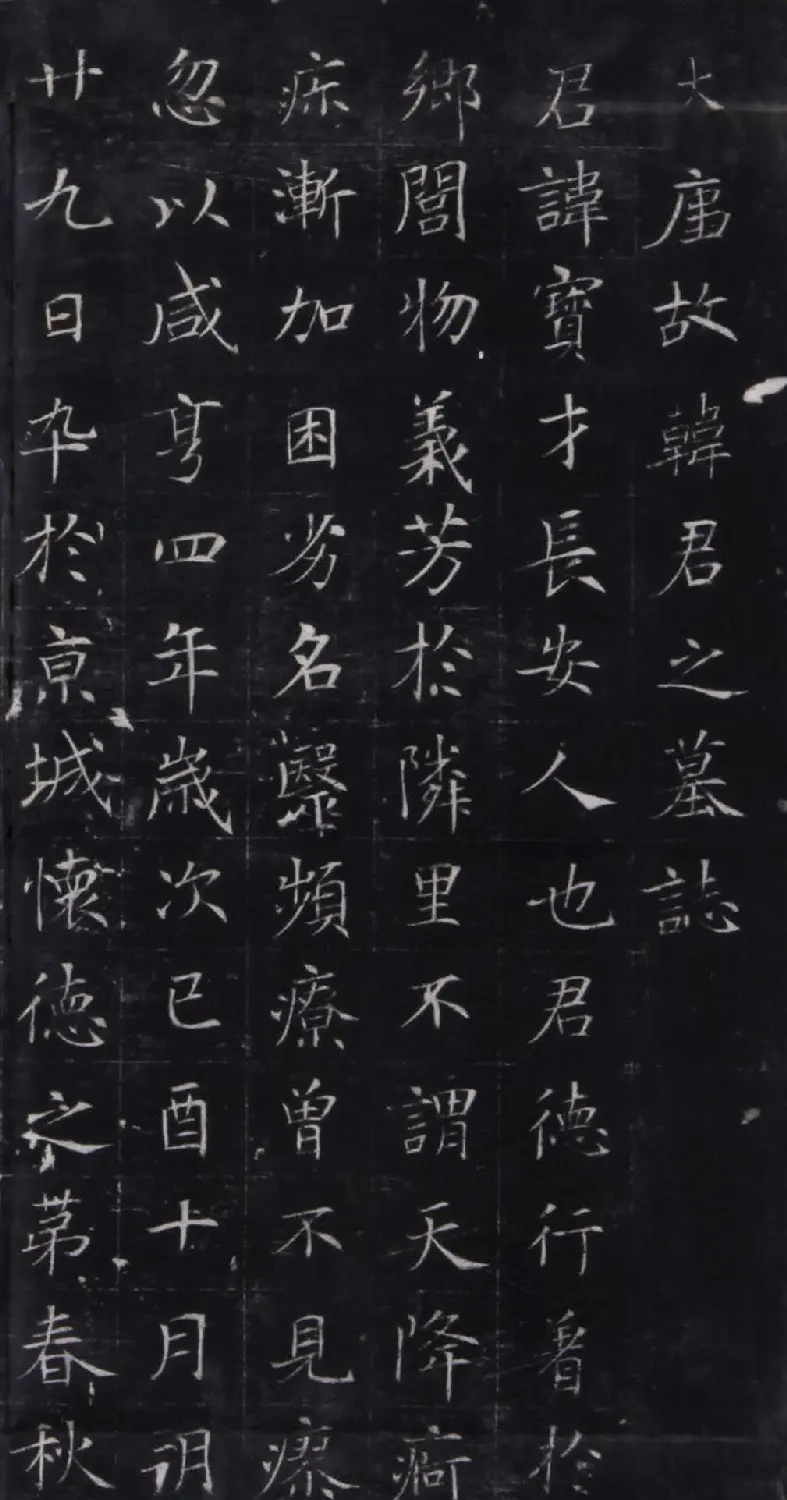 大唐故韓君之墓誌
君諱寶才長安人也君德行著於
鄉閭物義芳於隣里不謂天降痾
疢漸加困劣名毉頻療曾不見瘳
忽以咸亨四年歲次己酉十月朔
廿九日卒於京城懷德之第春秋